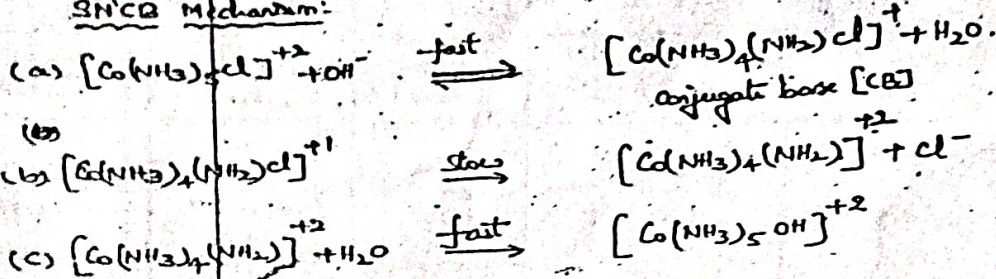 SNCB Mechanism:-
(a) [Co(NH3)5Cl]+2 + OH- fast ⇌ [Co(NH3)4(NH2)Cl]+ + H2O.
conjugate base [CB]
(b) [Co(NH3)4(NH2)Cl]+1 slow → [Co(NH3)4(NH2)]+2 + Cl-
(c) [Co(NH3)4(NH2)]+2 + H2O fast → [Co(NH3)5 OH]+2